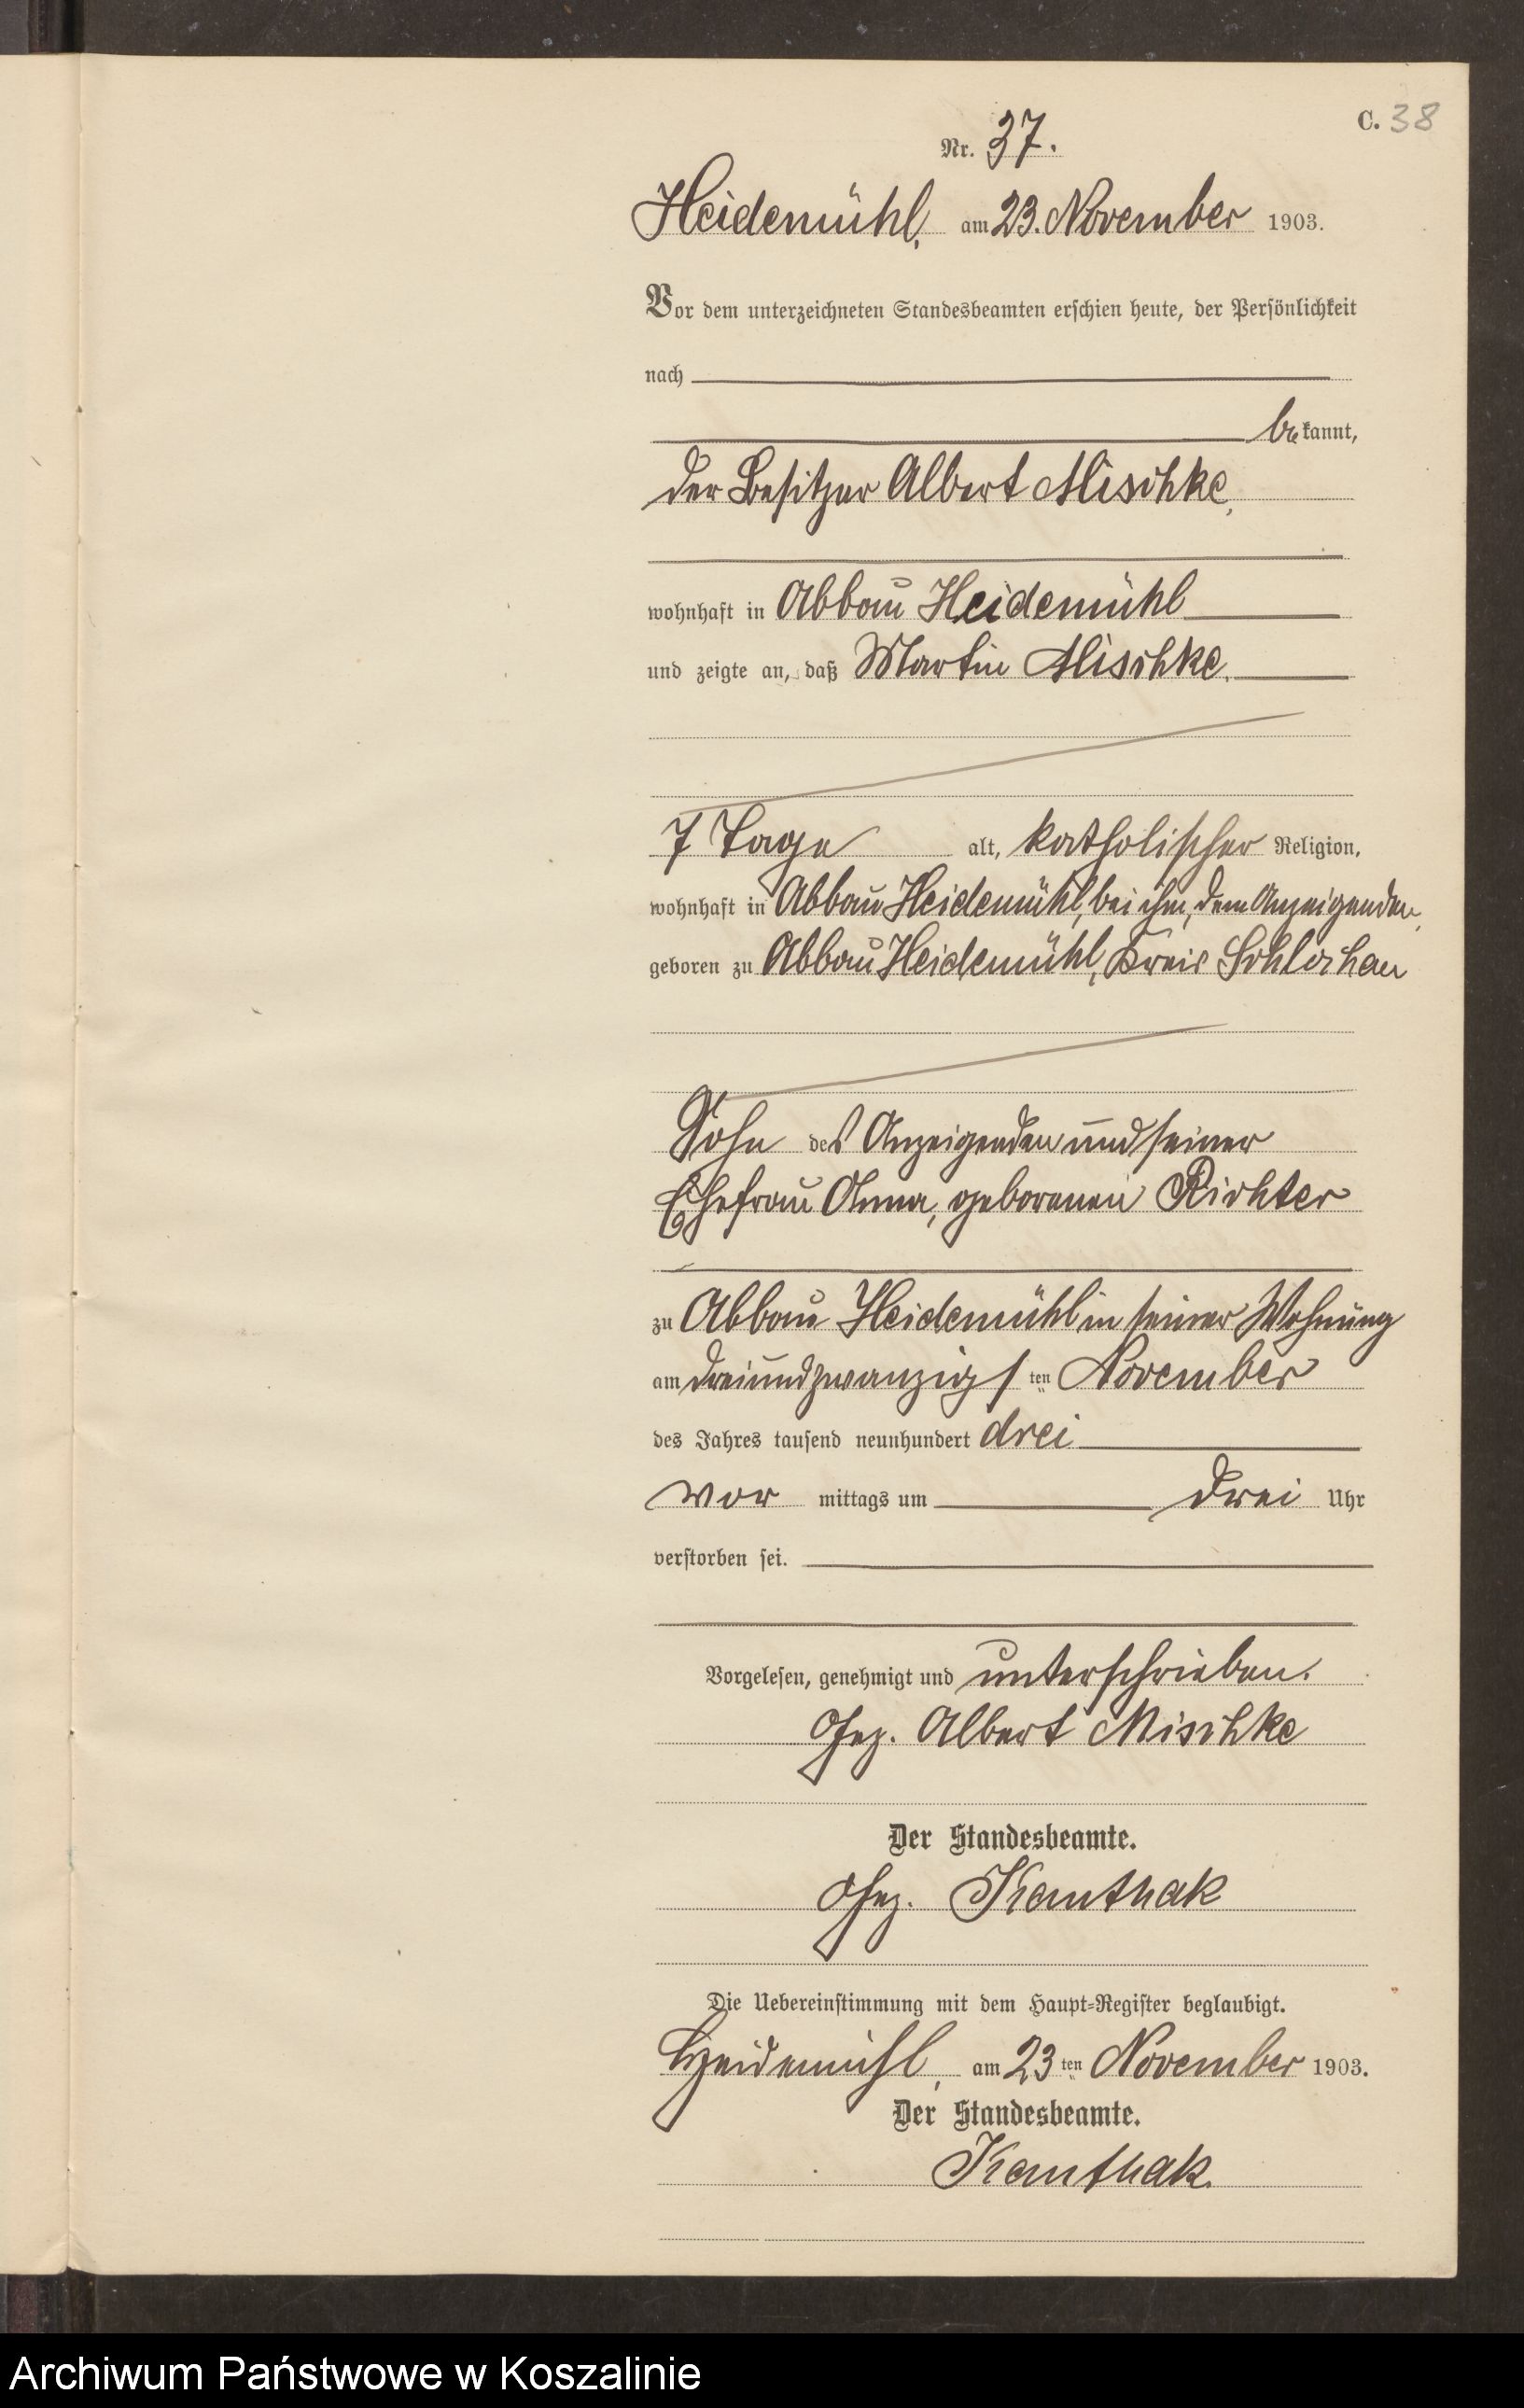 C. 38
Nr. 37.
Heidemühl, am 23. November 1903.
Vor dem unterzeichneten Standesbeamten erschien heute, der Persönlichkeit
nach
bekannt,
der Besitzer Albert Mischke,
wohnhaft in Abbau Heidemühl
und zeigte an, daß Martin Mischke,
7 Tage alt, katholischer Religion,
wohnhaft in Abbau Heidemühl, bei ihm, dem Anzeigenden,
geboren zu Abbau Heidemühl, Kreis Schlochau
Sohn des Anzeigenden und seiner
Ehefrau Anna, geborenen Richter
zu Abbau Heidemühl in seiner Wohnung
am dreiundzwanzigsten November
des Jahres tausend neunhundert drei
vor mittags um drei Uhr
verstorben sei.
Vorgelesen, genehmigt und unterschrieben.
Gez. Albert Mischke
Der Standesbeamte.
Gez. Kanthak
Die Uebereinstimmung mit dem Haupt-Register beglaubigt.
Heidemühl, am 23ten November 1903.
Der Standesbeamte.
Kanthak.
Archiwum Państwowe w Koszalinie